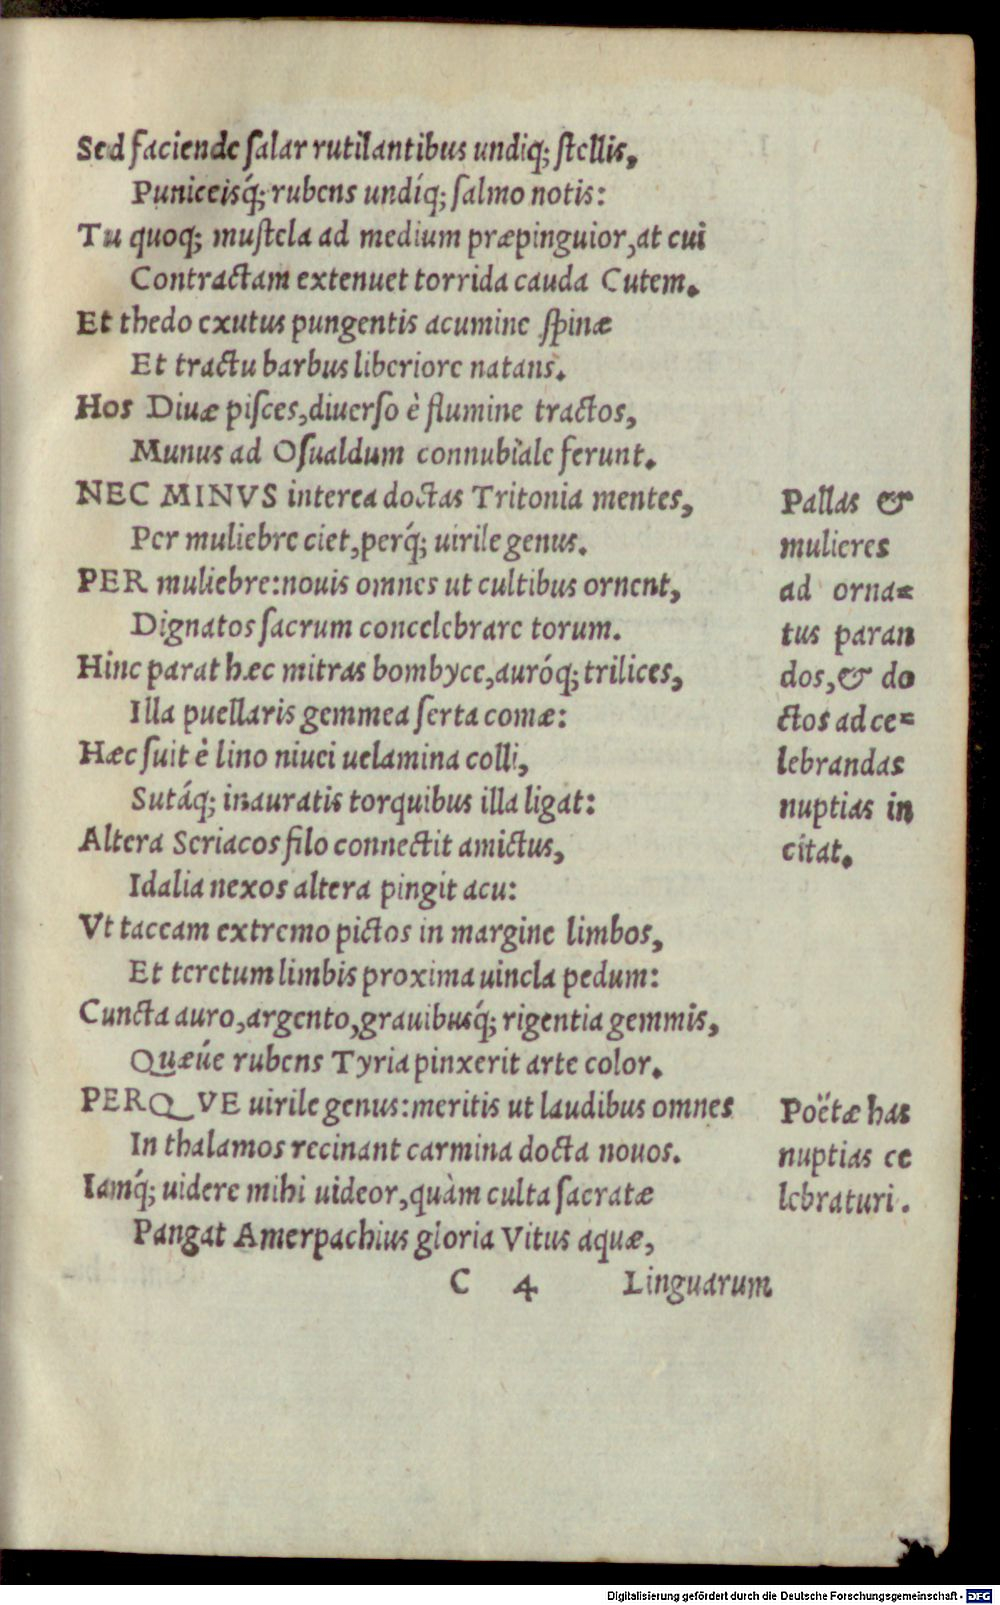 Sed faciende ſalar rutilantibus undiq; ſtellis,
Puniceisq́; rubens undíq; ſalmo notis:
Tu quoq; muſtela ad medium præpinguior, at cui
Contractam extenuet torrida cauda Cutem.
Et thedo exutus pungentis acumine ſpinæ
Et tractu barbus liberiore natans.
Hos Diuæ piſces, diuerſo è flumine tractos,
Munus ad Oſualdum connubiale ferunt.
NEC MINVS interea doctas Tritonia mentes,
Per muliebre ciet, perq́; uirile genus.
PER muliebre: nouis omnes ut cultibus ornent,
Dignatos ſacrum concelebrare torum.
Hinc parat hæc mitras bombyce, auróq; trilices,
Illa puellaris gemmea ſerta comæ:
Hæc ſuit è lino niuei uelamina colli,
Sutáq; inauratis torquibus illa ligat:
Altera Seriacos filo connectit amictus,
Idalia nexos altera pingit acu:
Vt taceam extremo pictos in margine limbos,
Et teretum limbis proxima uincla pedum:
Cuncta auro, argento, grauibusq́; rigentia gemmis,
Quæúe rubens Tyria pinxerit arte color.
PERQVE uirile genus: meritis ut laudibus omnes
In thalamos recinant carmina docta nouos.
Iamq́; uidere mihi uideor, quàm culta ſacratæ
Pangat Amerpachius gloria Vitus aquæ,
C 4 Linguarum
Pallas &
mulieres
ad orna=
tus paran
dos, & do
ctos ad ce=
lebrandas
nuptias in
citat.
Poëtæ has
nuptias ce
lebraturi.
Digitalisierung gefördert durch die Deutsche Forschungsgemeinschaft - DFG